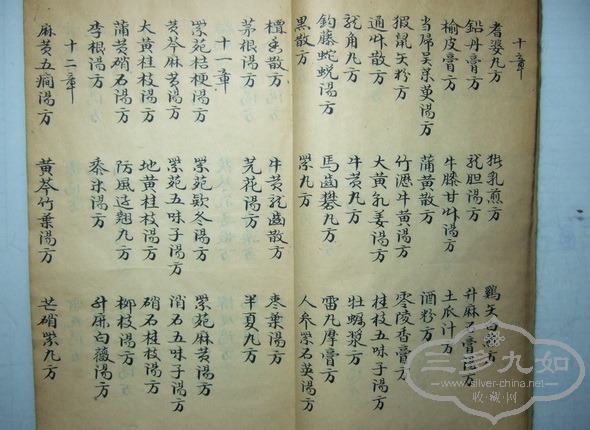 十章
耆婆丸方 猪乳煎方 鷄矢白散方
鉛丹膏方 龍胆湯方 升麻石膏湯方
榆皮膏方 牛膝甘艸湯方 土瓜汁方
当帰吴茱萸湯方 蒲黄散方 酒粉方
猳鼠矢粉方 竹瀝牛黄湯方 零陵香膏方
通艸散方 大黄乾姜湯方 桂枝五味子湯方
龍角丸方 牛黄丸方 牡蠣漿方
釣藤蛇蜕湯方 馬齒礬丸方 雷丸摩膏方
黑散方 紫丸方 人参紫石英湯方
檀香散方 牛黄龍齒散方 枣葉湯方
茅根湯方 芫花湯方 半夏丸方
十一章
紫苑桔梗湯方 紫苑款冬湯方 紫苑麻黄湯方
黄芩麻黄湯方 紫苑五味子湯方 消石五味子湯方
大黄桂枝湯方 地黄桂枝湯方 硝石桂枝湯方
蒲黄硝石湯方 防風连翘丸方 柳枝湯方
李根湯方 黍米湯方 升麻白薇湯方
十二章
麻黄五癎湯方 黄芩竹葉湯方 芒硝紫丸方
三多九如
www.silver-china.net
收藏网